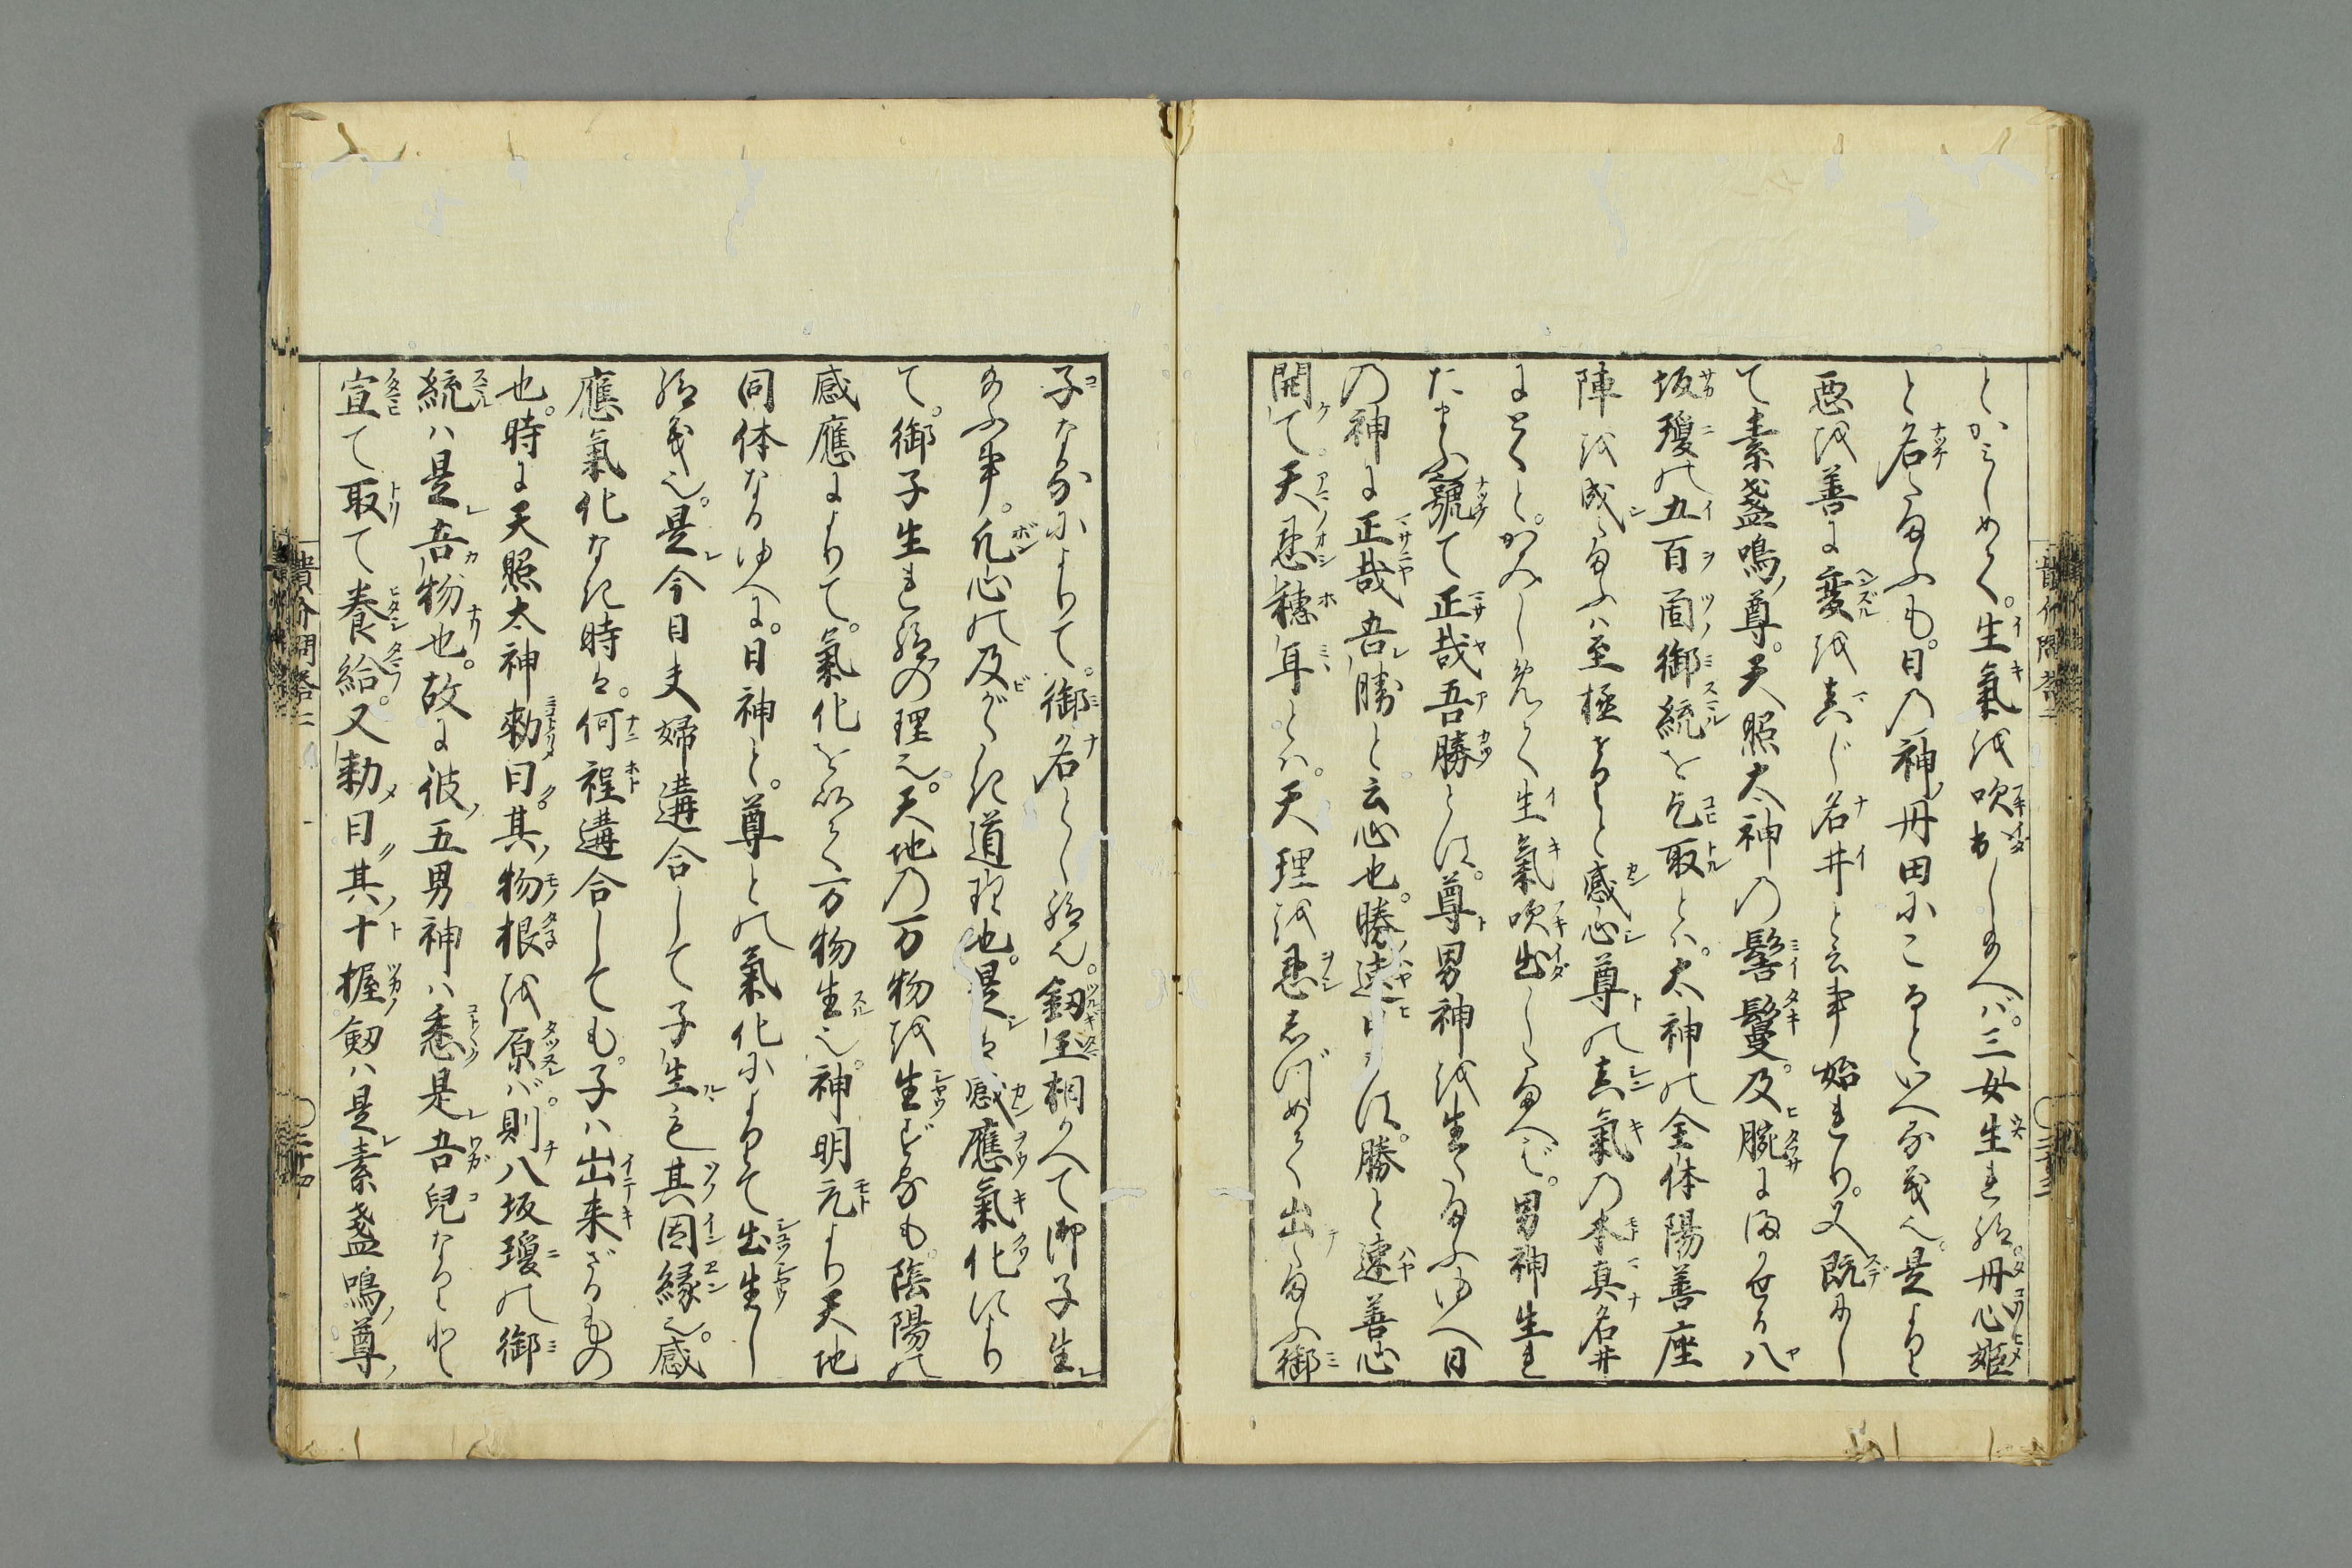 とかみしめて。生氣を吹出し給へバ。三女生れ給。丹心姫
と名給ふも。日の神丹田にこるといへる義也。是よりと
悪を善に変を真じ名井と云事始れり。又既にし
て素盞嗚尊。天照太神の髻鬘。及腕にまかせる八
坂瓊の五百箇御統を乞取とハ。太神の全体陽善座
陣を成給ふハ至極せりと感心尊の真氣の本真名井
にそゝと。かみしめて生氣吹出し給へば。男神生れ
たまふ號て正哉吾勝とは。尊男神を生給ふゆへ日
の神に正哉吾勝と云心也。勝速日とは。勝と速善心
開て。天忍穂耳とハ。天理を忍しづめて出給ふ御
子なるによりて。御名とし給ふ。釼玉相かへて御子生
給ふ事。凡心の及がたき道理也。是は感應氣化により
て。御子生れ給ふの理也。天地の万物を生ずるも。陰陽の
感應によりて。氣化を以て万物生也。神明元より天地
同体なるゆへに。日神と。尊との氣化によりて出生し
給義也。是今日夫婦遘合して子生も其因縁也。感
應氣化なき時は。何程遘合しても。子ハ出来ざるもの
也。時に天照太神勅曰。其物根を原バ。則八坂瓊の御
統ハ是吾物也。故に彼五男神ハ悉是吾兒なりと
宣て取て養給。又勅曰其十握釼ハ是素盞嗚尊